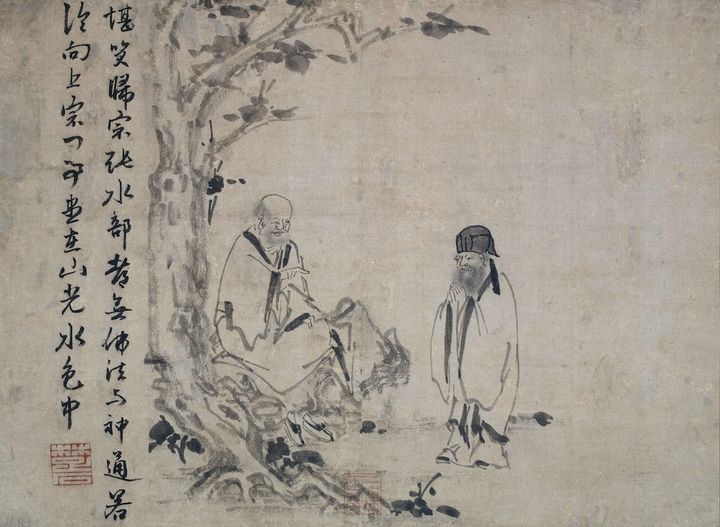 堪笑歸宗張水部都無佛法与神通畧
論向上宗門事盡在山光水色中
楚石